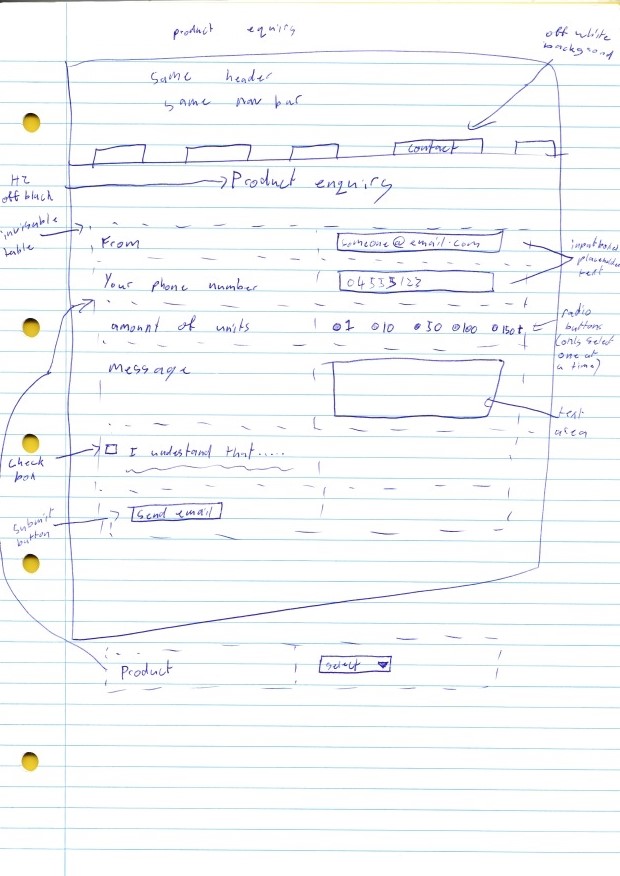 product enquiry
off white
background
same header
same nav bar
contact
H2
off black
Product enquiry
invisable
table
From
someone@email.com
input boxes
placeholder
text
Your phone number
amount of units
1 10 50 100 150+
radio
buttons
(only select
one at
a time)
message
text
area
check
box
I understand that.....
submit
button
Send email
Product
select